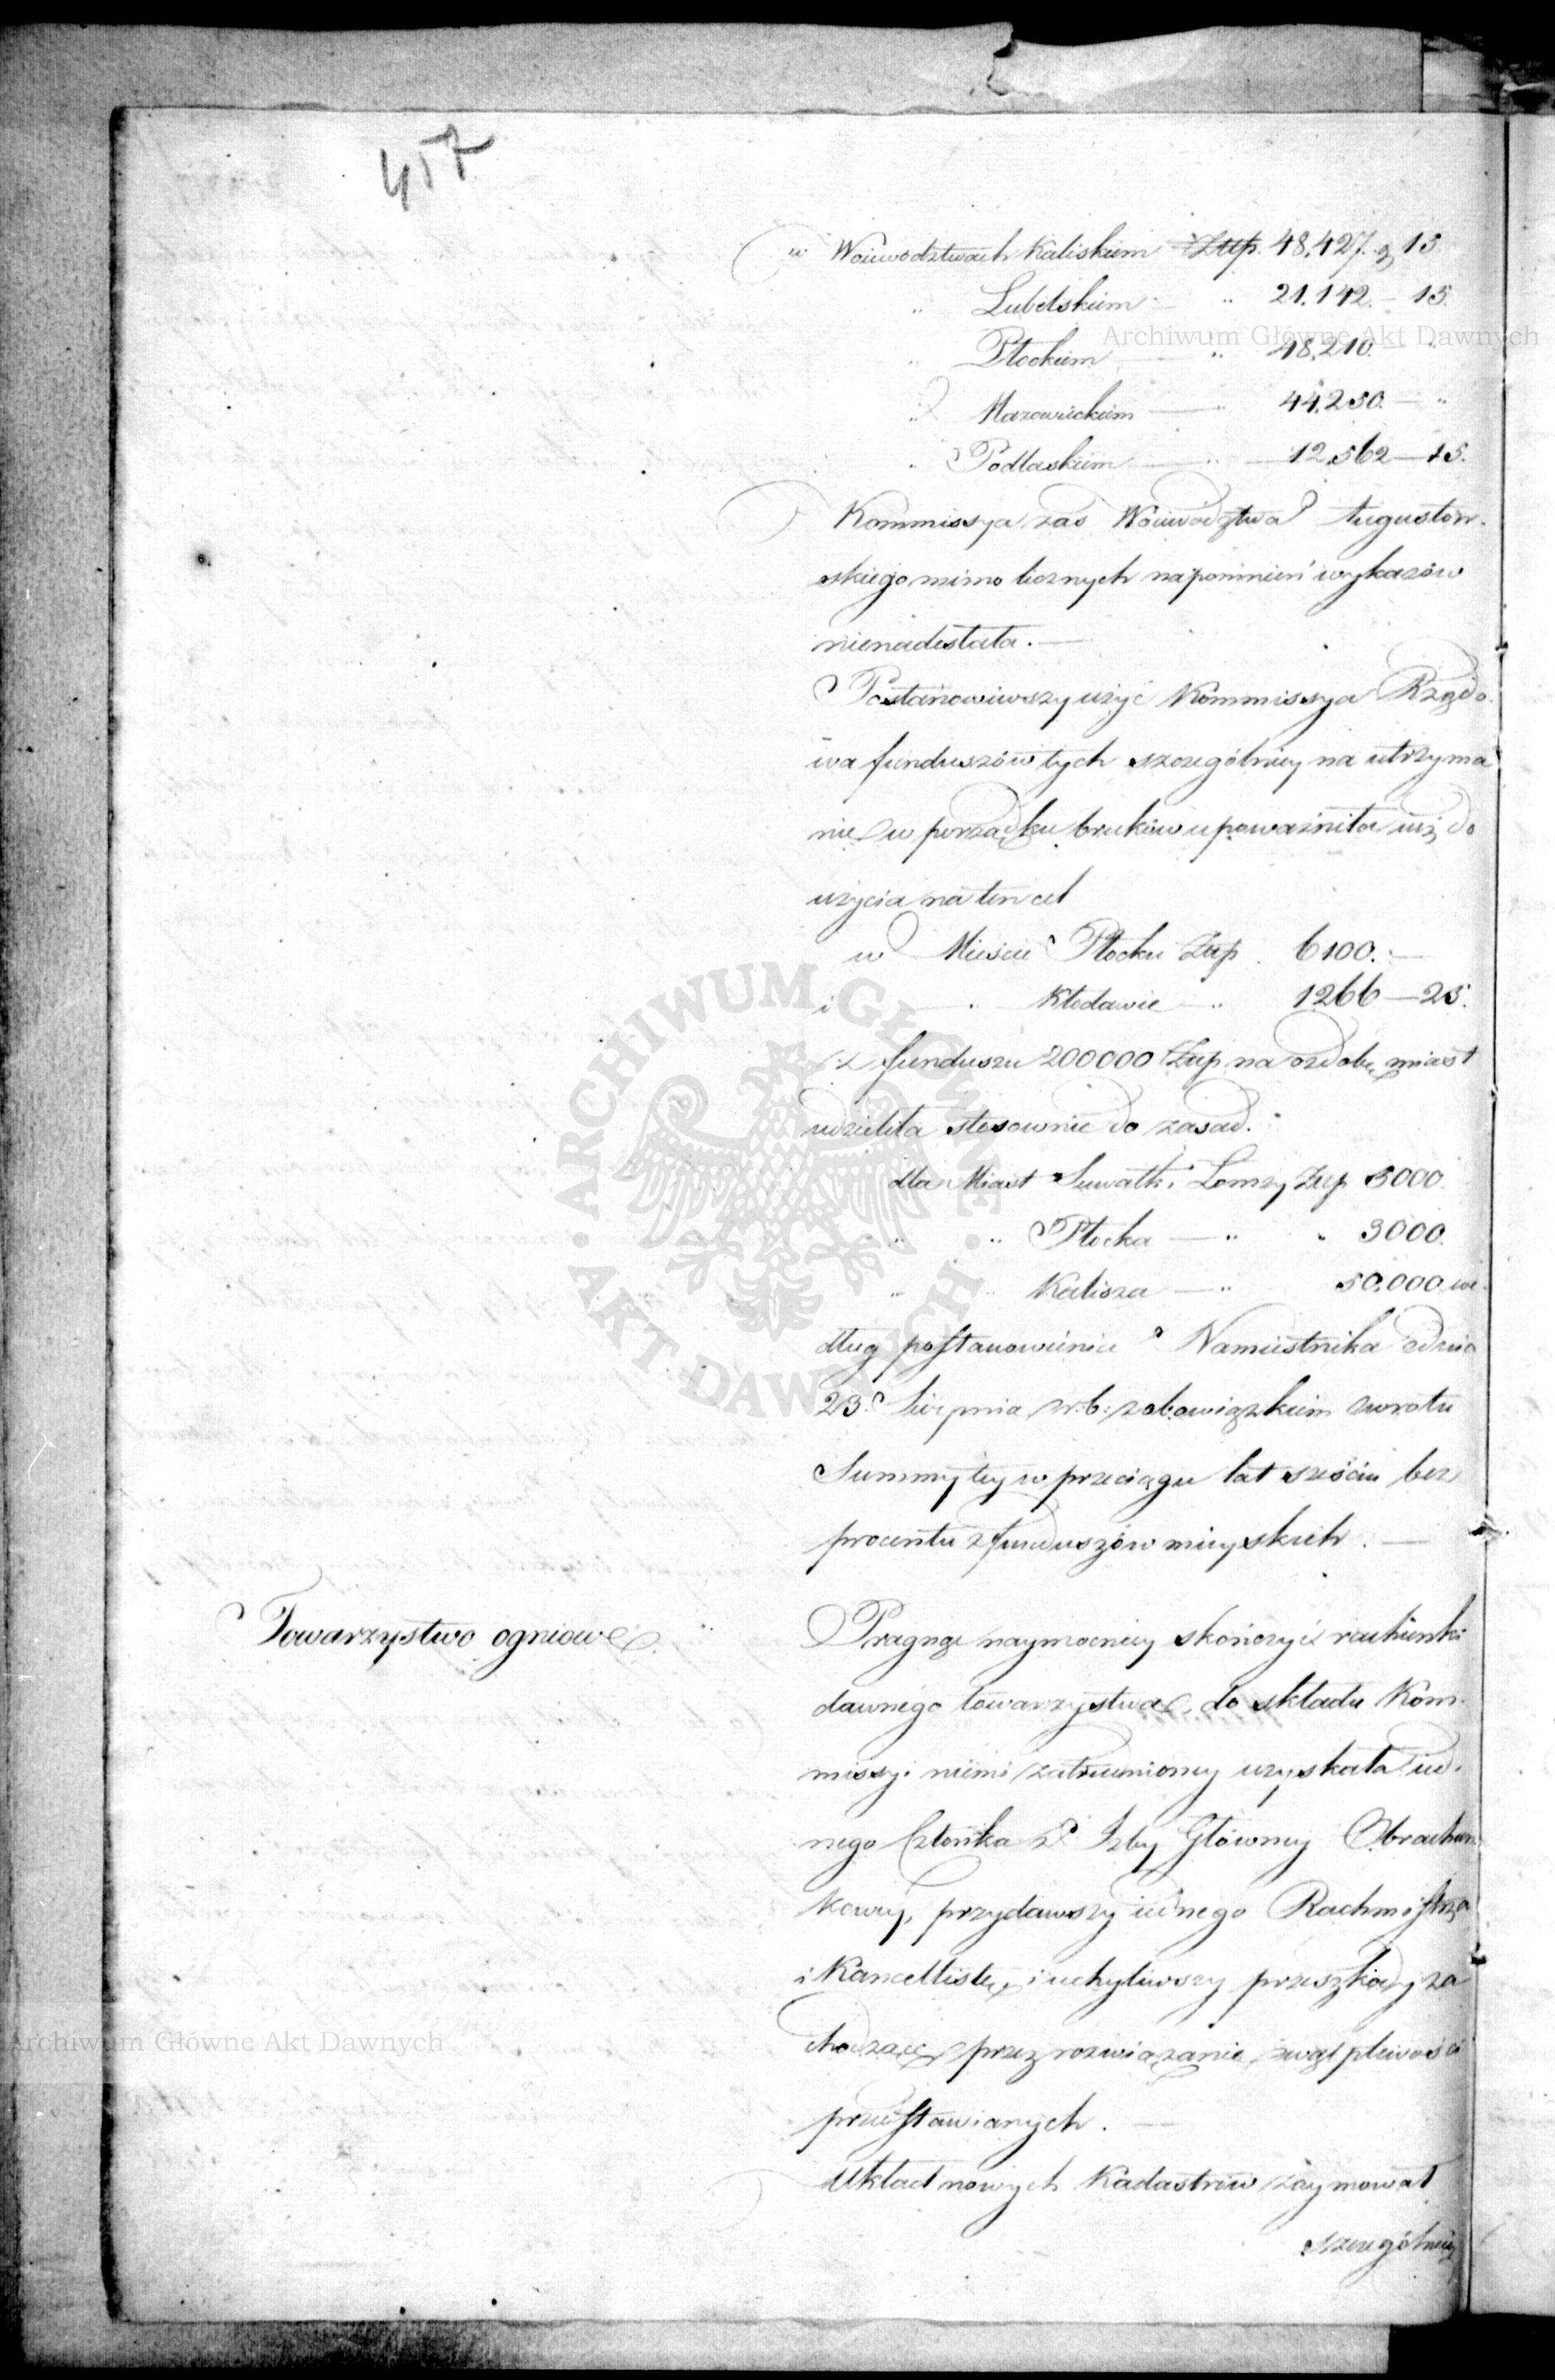 457
w Woiewództwach Kaliskiem Złłp. 48,427. g 15
" Lubelskiem — " 21,142. — 15.
" Płockiem — " 48,210. — "
" Mazowieckiem — " 44,250. — "
" Podlaskiem — " 12,562 — 15.
Kommissya zaś Woiewództwa Augustow-
skiego mimo licznych napomnień wykazów
nienadesłała. —
Postanowiwszy użyć Kommissya Rządo-
wa funduszów tych szczególniey na utrzyma
nie w porządku bruków upoważniła iuż do
użycia na ten cel
w Mieście Płocku Złp. 6100. —
i " Kłodawie " 1266 — 25.
z funduszu 200000 Złłp na ozdobę miast
udzieliła stosownie do zasad.
dla Miast Suwałk i Łomży Złłp 5000.
" " Płocka — " " 3000.
" " Kalisza — " 50,000 we-
dług postanowienia Namiestnika z dnia
23. Sierpnia r. b. z obowiązkiem zwrotu
Summy tey w przeciągu lat sześciu bez
procentu z funduszów mieyskich. —
Towarzystwo ogniowe
Pragnąc naymocniey skończyć rachunki
dawnego towarzystwa, do składu Kom-
missyi niemi zatrudnioney uzyskała ied-
nego Członka z Izby Główney Obrachun
kowey, przydawszy iednego Rachmistrza
i Kancellistę, i uchyliwszy przeszkody za
chodzące przez rozwiązanie wątpliwości
przedstawianych. —
Układ nowych Kadastrów zaymował
szczególniey
Archiwum Główne Akt Dawnych
ARCHIWUM GŁÓWNE • AKT DAWNYCH •
Archiwum Główne Akt Dawnych